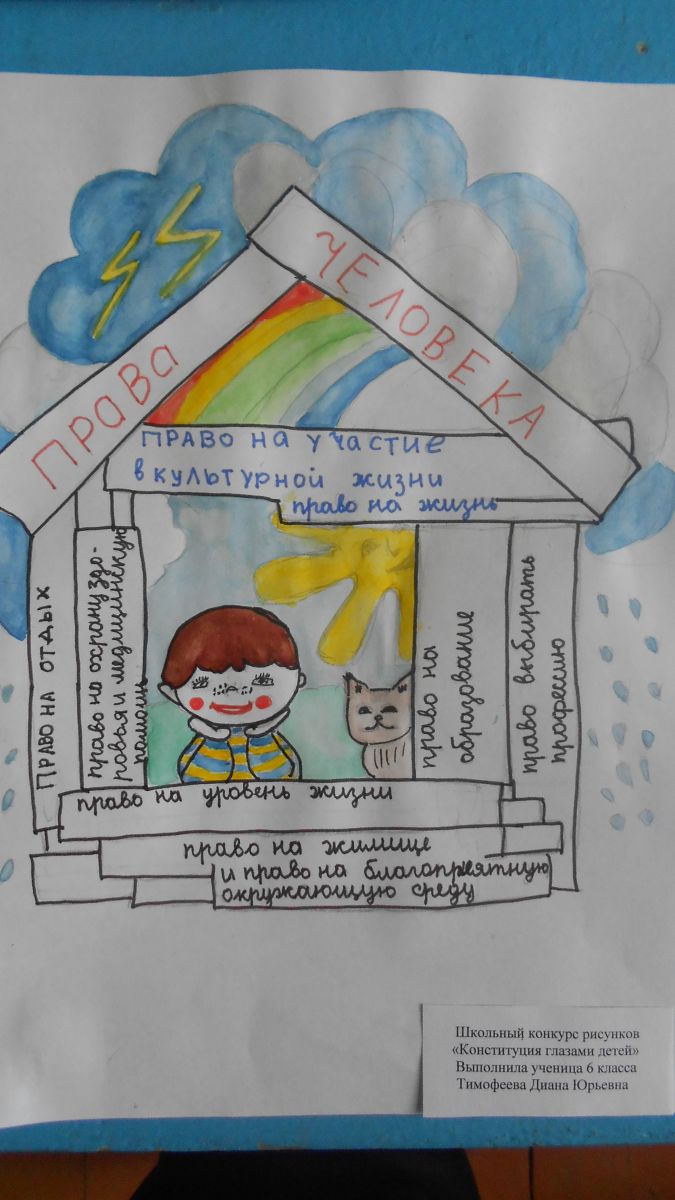 ПРАВА
ЧЕЛОВЕКА
ПРАВО НА УЧАСТИЕ
в КУЛЬТУРНОЙ ЖИЗНИ
право на жизнь
ПРАВО НА ОТДЫХ
право на охрану здо-
ровья и медицинскую
помощь
право на
образование
право выбирать
профессию
право на уровень жизни
право на жилище
и право на благоприятную
окружающую среду
Школьный конкурс рисунков
«Конституция глазами детей»
Выполнила ученица 6 класса
Тимофеева Диана Юрьевна